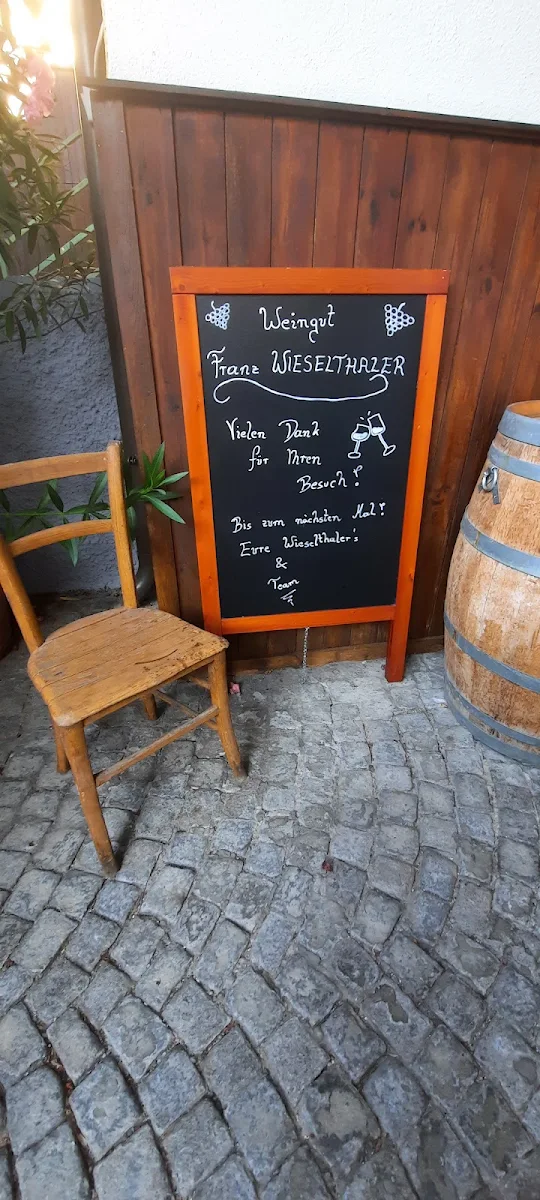 Weingut
Franz WIESELTHALER
Vielen Dank
für Ihren
Besuch!
Bis zum nächsten Mal!
Eure Wieselthaler's
&
Team